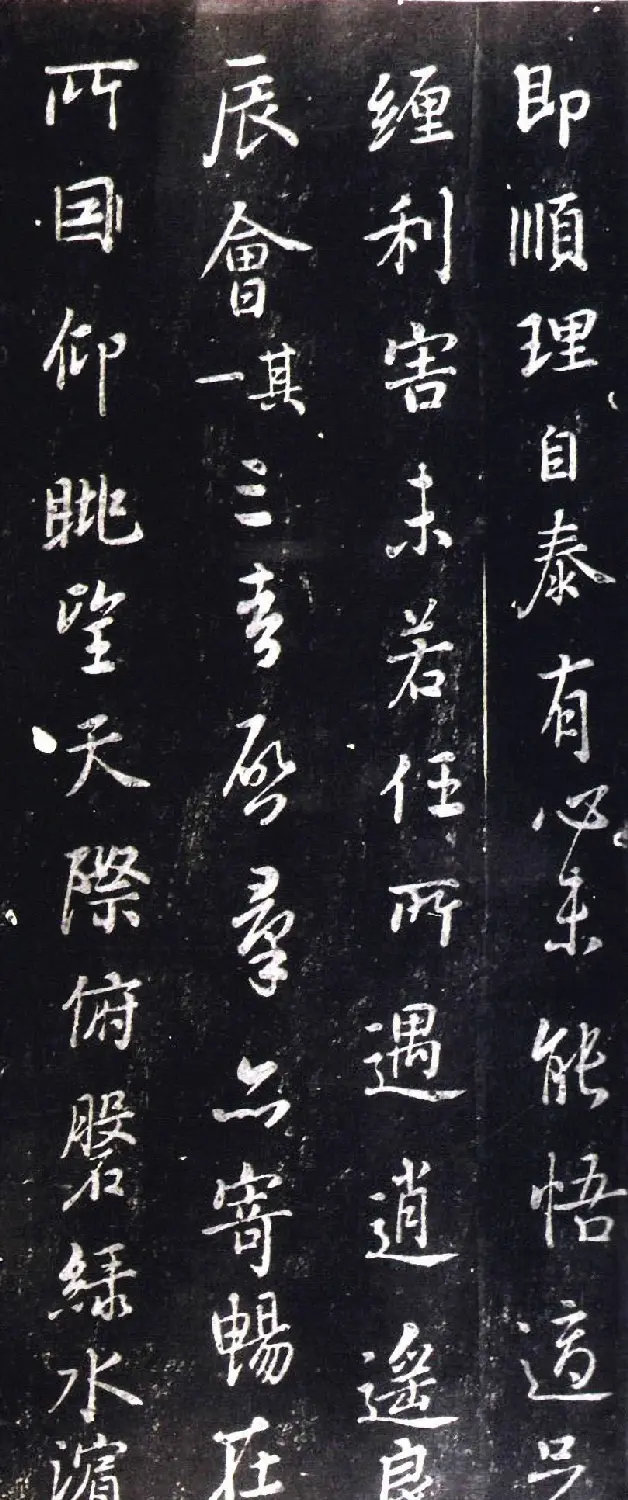 即順理自泰有心未能悟適
纏利害未若任所遇逍遙良
辰會其一三春啟羣品寄暢在
所因仰眺望天際俯磐綠水濱